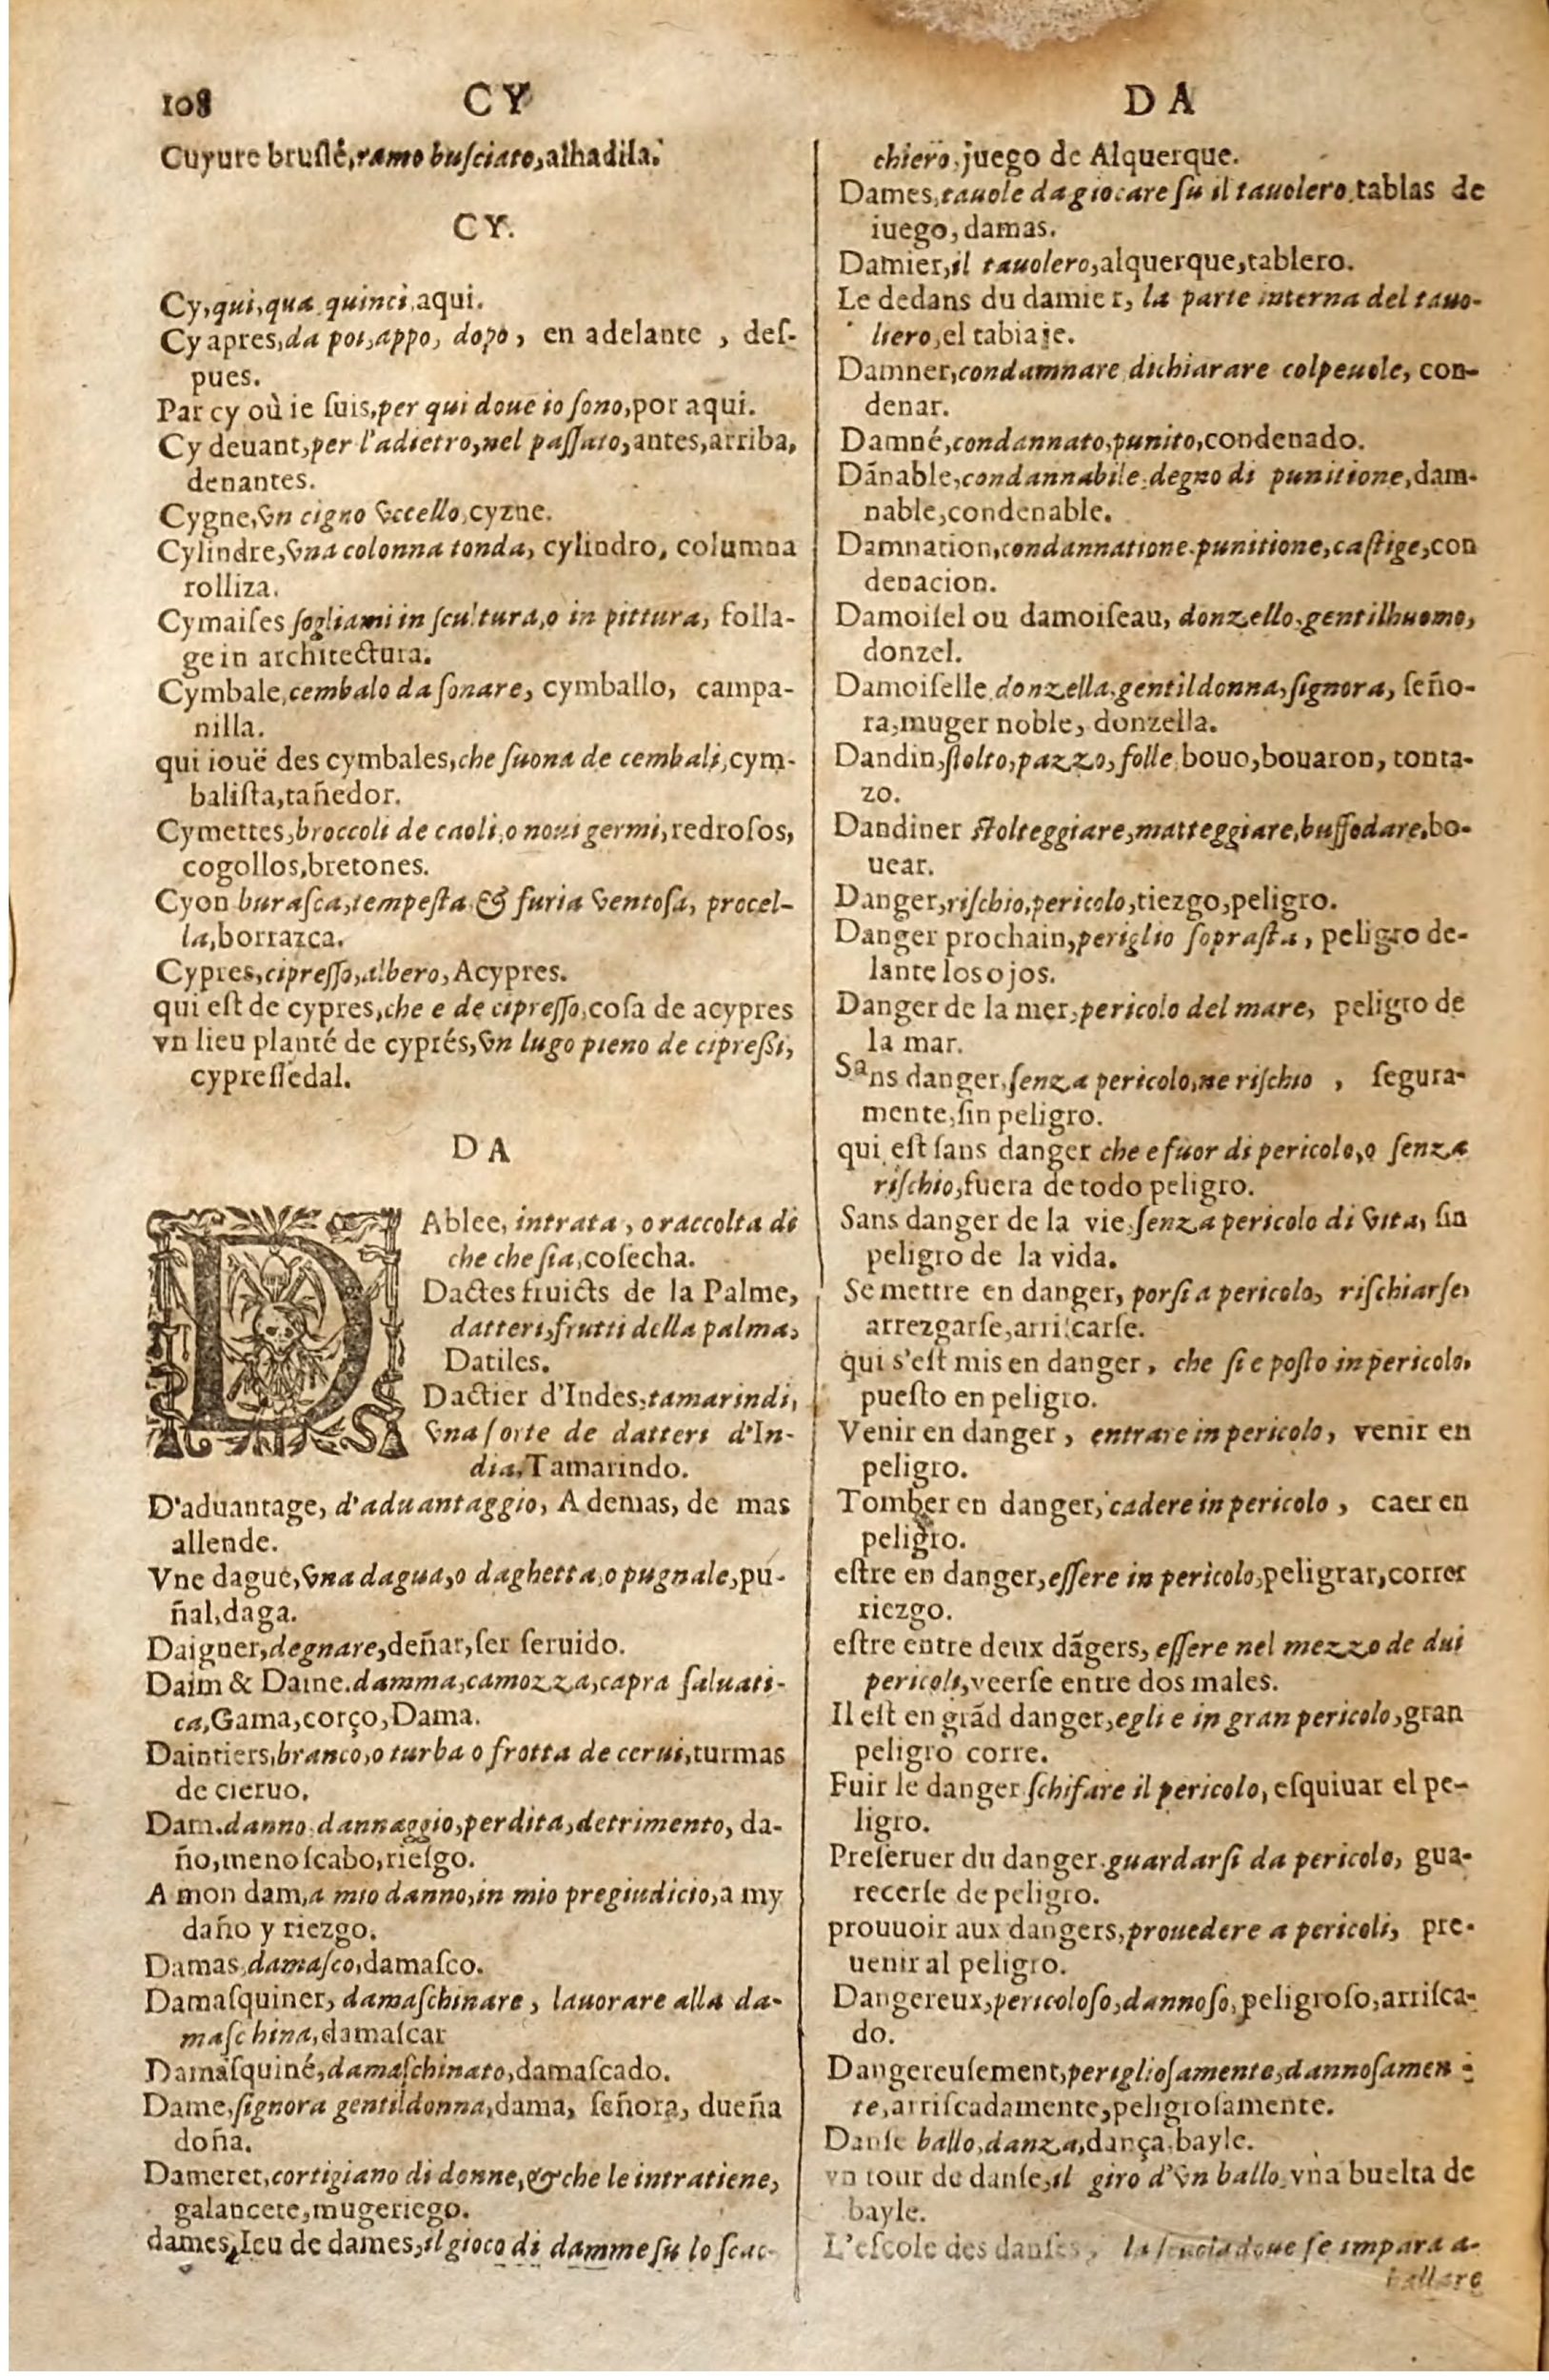 108 CY DA
Cuyure bruslé, ramo busciato, alhadila.
CY.
Cy, qui, qua quinci, aqui.
Cy apres, da poi, appo, dopo, en adelante, des-
pues.
Par cy où ie suis, per qui doue io sono, por aqui.
Cy deuant, per l'adietro, nel passato, antes, arriba,
denantes.
Cygne, vn cigno vccello, cyzne.
Cylindre, vna colonna tonda, cylindro, columna
rolliza.
Cymaises fogliami in scultura, o in pittura, folla-
ge in architectura.
Cymbale, cembalo da sonare, cymballo, campa-
nilla.
qui iouë des cymbales, che suona de cembali, cym-
balista, tañedor.
Cymettes, broccoli de caoli, o noui germi, redrosos,
cogollos, bretones.
Cyon burasca, tempesta & furia ventosa, procel-
la, borrazca.
Cypres, cipresso, albero, Acypres.
qui est de cypres, che e de cipresso, cosa de acypres
vn lieu planté de cyprés, vn lugo pieno de cipressi,
cypressedal.
DA
DAblee, intrata, o raccolta di
che che sia, cosecha.
Dactes fruicts de la Palme,
datteri, frutti della palma,
Datiles.
Dactier d'Indes, tamarindi,
vna sorte de datteri d'In-
dia, Tamarindo.
D'aduantage, d'aduantaggio, Ademas, de mas
allende.
Vne dague, vna dagua, o daghetta, o pugnale, pu-
ñal, daga.
Daigner, degnare, deñar, ser seruido.
Daim & Daine. damma, camozza, capra saluati-
ca, Gama, corço, Dama.
Daintiers, branco, o turba o frotta de cerui, turmas
de cieruo.
Dam. danno, dannaggio, perdita, detrimento, da-
ño, menoscabo, riesgo.
A mon dam, a mio danno, in mio pregiudicio, a my
daño y riezgo.
Damas, damasco, damasco.
Damasquiner, damaschinare, lauorare alla da-
maschina, damascar
Damasquiné, damaschinato, damascado.
Dame, signora gentildonna, dama, señora, dueña
doña.
Dameret, cortigiano di donne, & che le intratiene,
galancete, mugeriego.
dames, Ieu de dames, il gioco di damme su lo scac-
chiero, juego de Alquerque.
Dames, tauole da giocare su il tauolero, tablas de
iuego, damas.
Damier, il tauolero, alquerque, tablero.
Le dedans du damier, la parte interna del tauo-
liero, el tabiaje.
Damner, condamnare dichiarare colpeuole, con-
denar.
Damné, condannato, punito, condenado.
Dãnable, condannabile, degno di punitione, dam-
nable, condenable.
Damnation, condannatione, punitione, castige, con
denacion.
Damoisel ou damoiseau, donzello, gentilhuomo,
donzel.
Damoiselle donzella, gentildonna, signora, seño-
ra, muger noble, donzella.
Dandin, stolto, pazzo, folle bouo, bouaron, tonta-
zo.
Dandiner stolteggiare, matteggiare, buffodare, bo-
uear.
Danger, rischio, pericolo, riezgo, peligro.
Danger prochain, periglio soprasta, peligro de-
lante los ojos.
Danger de la mer, pericolo del mare, peligro de
la mar.
Sans danger, senza pericolo, ne rischio, segura-
mente, sin peligro.
qui est sans danger che e fuor di pericolo, o senza
rischio, fuera de todo peligro.
Sans danger de la vie, senza pericolo di vita, sin
peligro de la vida.
Se mettre en danger, porsi a pericolo, rischiarse,
arrezgarse, arriscarse.
qui s'est mis en danger, che si e posto in pericolo,
puesto en peligro.
Venir en danger, entrare in pericolo, venir en
peligro.
Tomber en danger, cadere in pericolo, caer en
peligro.
estre en danger, essere in pericolo, peligrar, correr
riezgo.
estre entre deux dãgers, essere nel mezzo de dui
pericoli, veerse entre dos males.
Il est en grãd danger, egli e in gran pericolo, gran
peligro corre.
Fuir le danger schifare il pericolo, esquiuar el pe-
ligro.
Preseruer du danger, guardarsi da pericolo, gua-
recerse de peligro.
prouuoir aux dangers, prouedere a pericoli, pre-
uenir al peligro.
Dangereux, pericoloso, dannoso, peligroso, arrisca-
do.
Dangereusement, perigliosamente, dannosamen-
te, arriscadamente, peligrosamente.
Danse ballo, danza, dança, bayle.
vn tour de danse, il giro d'vn ballo, vna buelta de
bayle.
L'escole des danses, la scuola doue se impara a-
ballare